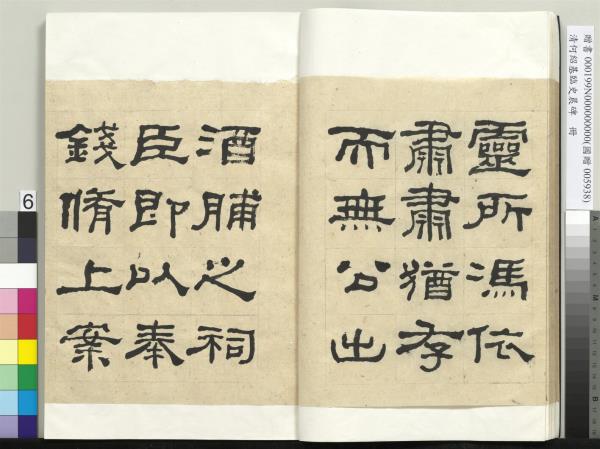 靈所馮依
肅肅猶存
而無公出
酒脯之祠
臣即以奉
錢脩上案
贈書 000199N000000000(國贈 005938)
清何紹基臨史晨碑 冊
6